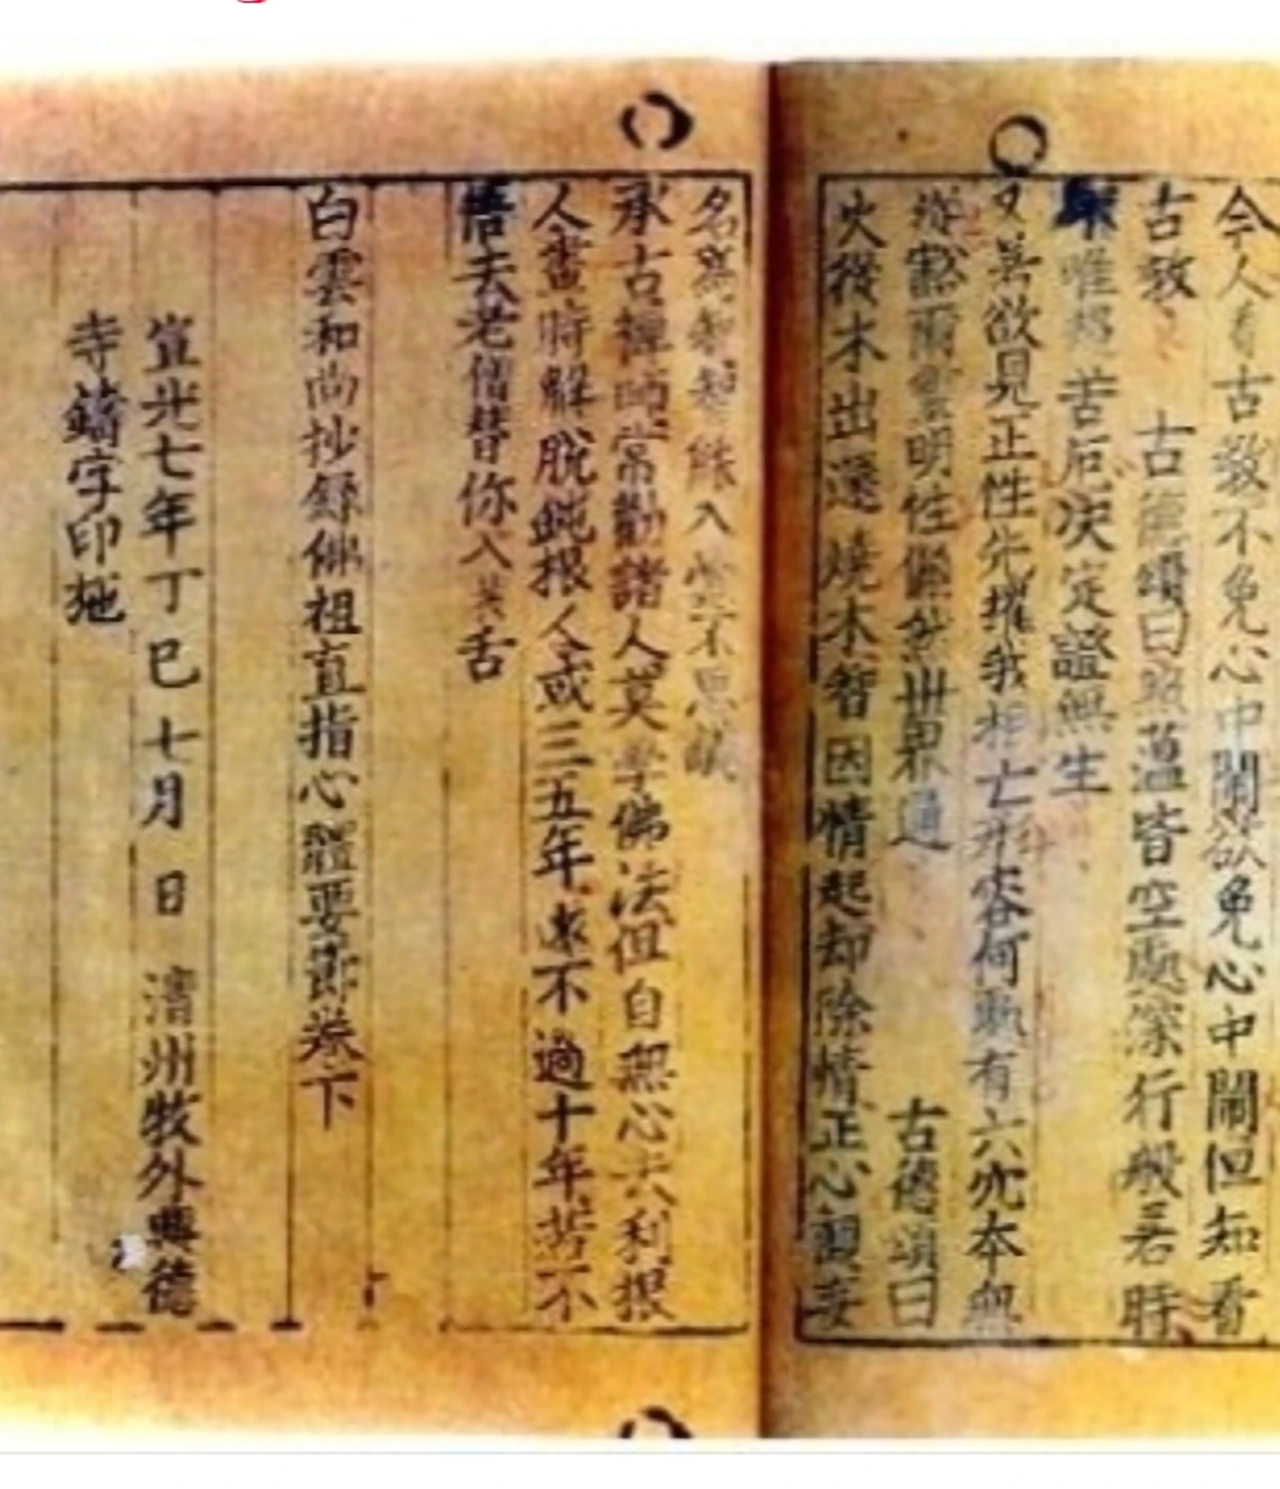 今人看古教不免心中鬧欲免心中鬧但知看
古教 古德頌曰照蘊皆空處深行般若時
唯超苦厄決定證無生
又若欲見正性先摧我相亡形容何處有六本無
豁爾靈明性縣分卅界通 古德頌曰
火從木出還燒木智因情起却除情正心觀妄
名爲智智能入空不思議
承古禪師常勸諸人莫學佛法但自無心去利根
人晝時解脫鈍根人或三五年遠不過十年若不
悟去老僧替你入舌
白雲和尚抄錄佛祖直指心體要節卷下
宣光七年丁巳七月 日 清州牧外興德
寺鑄字印施